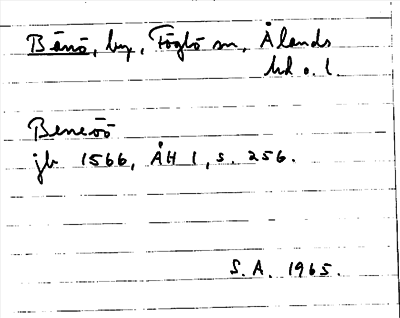 Bänö, by, Föglö sn, Ålands
hd o. l.
Beneöö
jb 1566, ÅH 1, s. 256.
S. A. 1965.